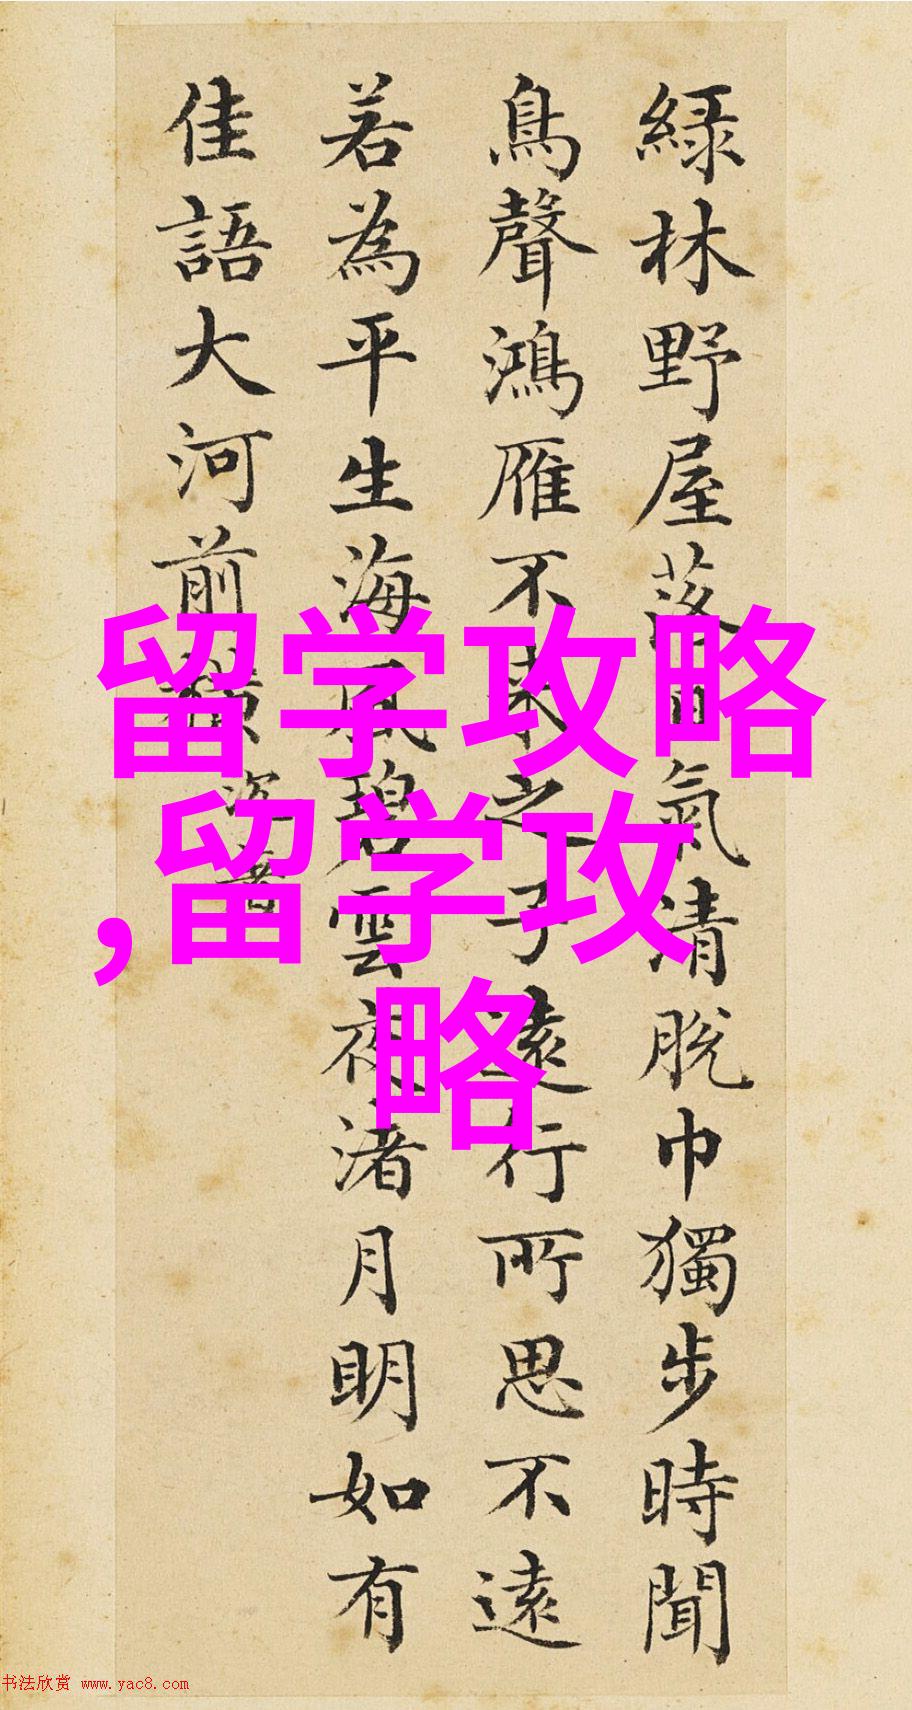 綠林野屋落日氣清脫巾獨步時聞
鳥聲鴻雁不來之子遠行所思不遠
若為平生海風碧雲夜渚月明如有
佳語大河前橫
留学攻略
,留学攻
略
书法欣赏 www.yac8.com